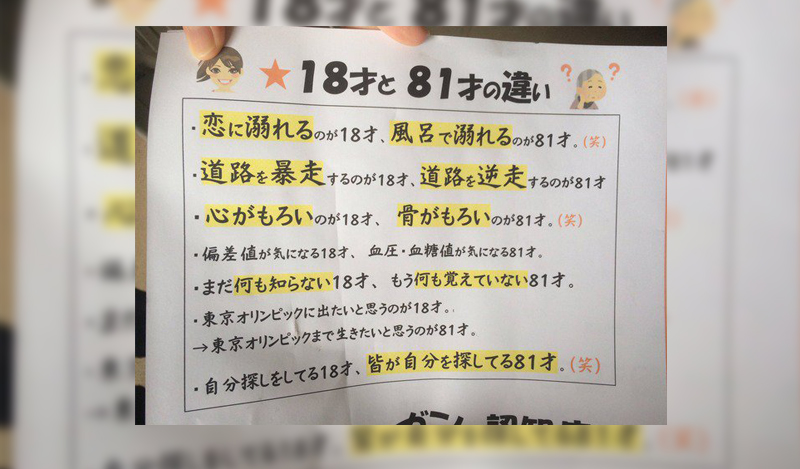 18才と81才の違い
??
・恋に溺れるのが18才、風呂で溺れるのが81才。(笑)
・道路を暴走するのが18才、道路を逆走するのが81才
・心がもろいのが18才、骨がもろいのが81才。(笑)
・偏差値が気になる18才、血圧・血糖値が気になる81才。
・まだ何も知らない18才、もう何も覚えていない81才。
・東京オリンピックに出たいと思うのが18才。
→東京オリンピックまで生きたいと思うのが81才。
・自分探しをしてる18才、皆が自分を探してる81才。(笑)